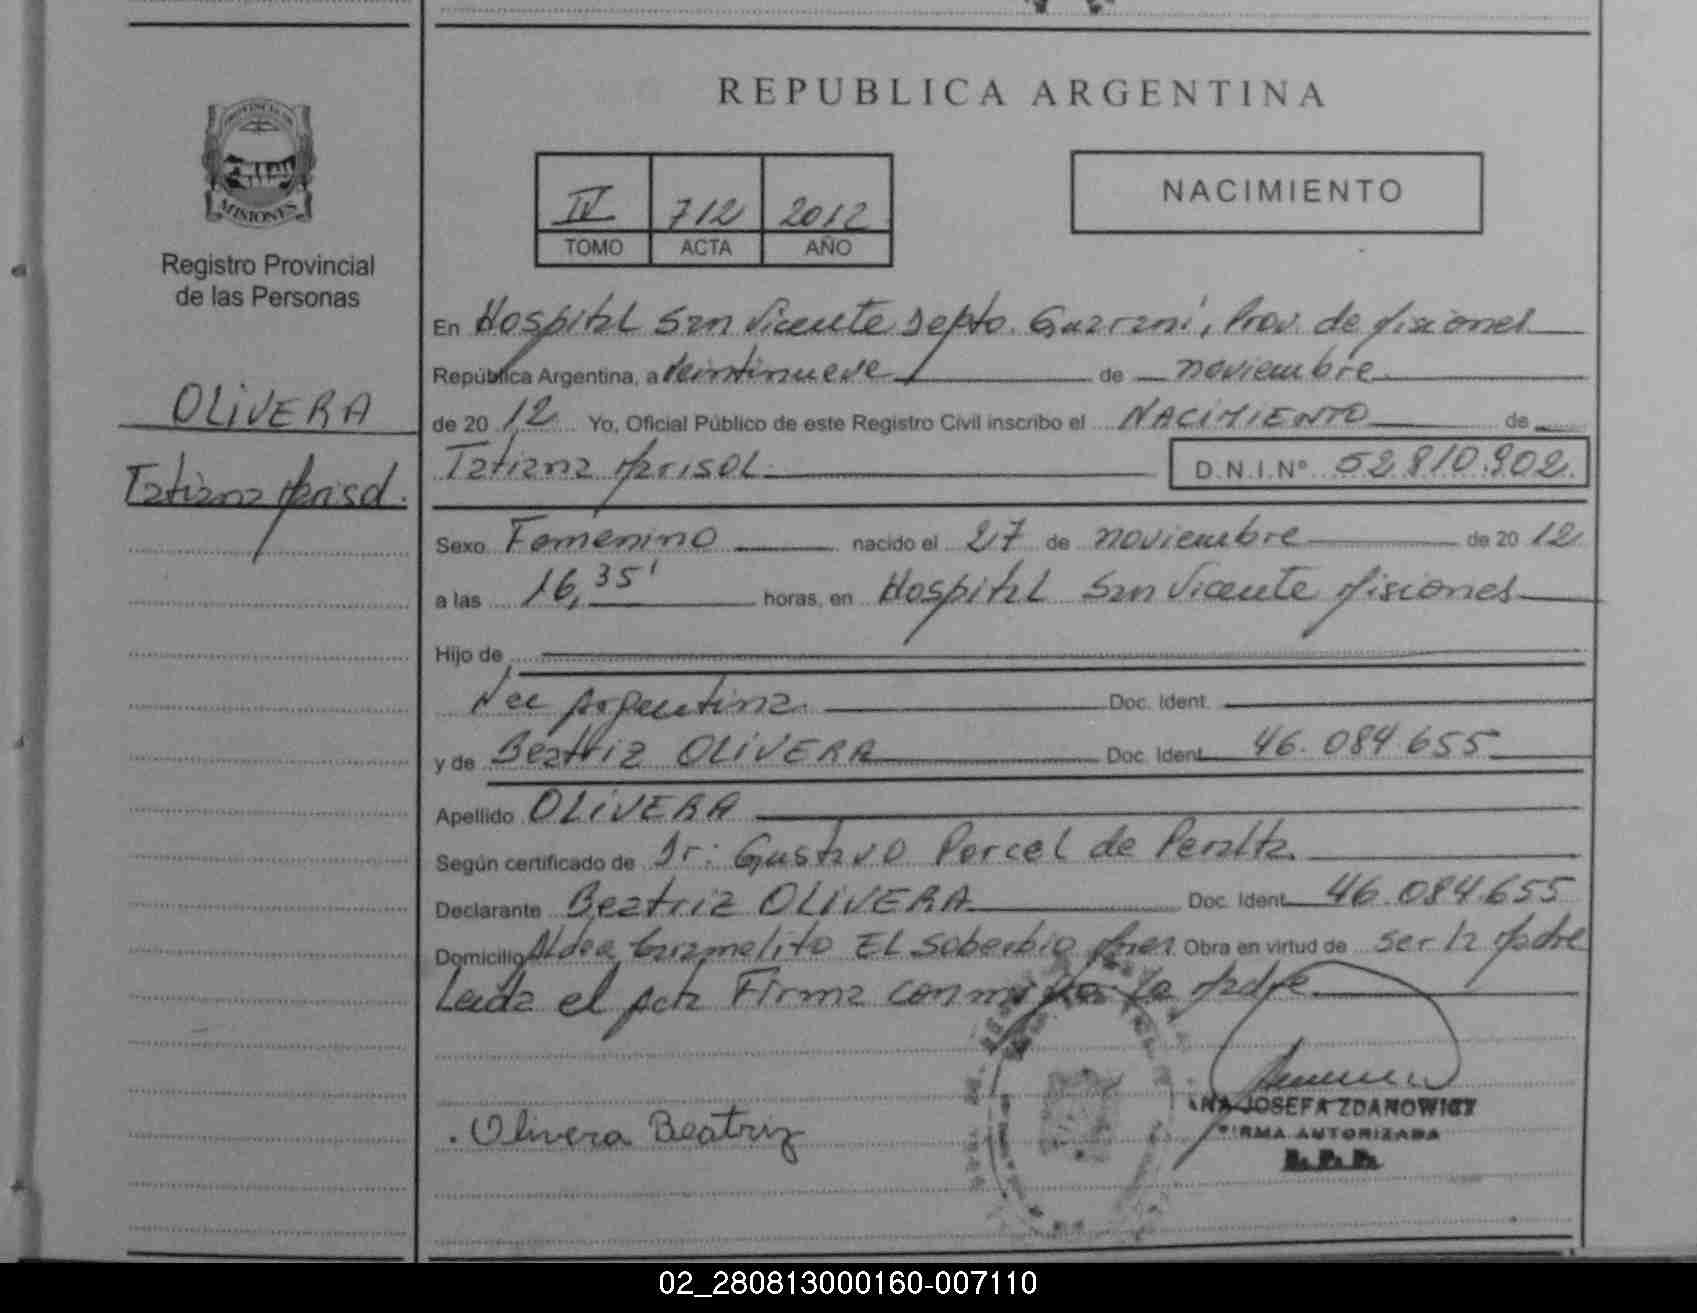 REPUBLICA ARGENTINA
PROVINCIA DE
MISIONES
Registro Provincial
de las Personas
OLIVERA
Tatiana Marisol.
IV 712 2012
TOMO ACTA AÑO
NACIMIENTO
En Hospital San Vicente Depto. Guaraní, Prov. de Misiones
República Argentina, a Veintinueve de noviembre
de 20 12 Yo, Oficial Público de este Registro Civil inscribo el NACIMIENTO de
Tatiana Marisol D.N.I.Nº 52.810.902.
Sexo Femenino nacido el 27 de noviembre de 20 12
a las 16,35' horas, en Hospital San Vicente Misiones
Hijo de
Nac Argentina. Doc. Ident.
y de Beatriz OLIVERA Doc. Ident. 46.084.655
Apellido OLIVERA
Según certificado de Dr: Gustavo Porcel de Peralta.
Declarante Beatriz OLIVERA Doc. Ident. 46.084.655
Domicilio Aldea El Soberbio Obra en virtud de ser la Madre
Leida el Acta Firma conmigo la Madre
Olivera Beatriz
ANA JOSEFA ZDANOWICZ
FIRMA AUTORIZADA
R.P.P.
02_280813000160-007110